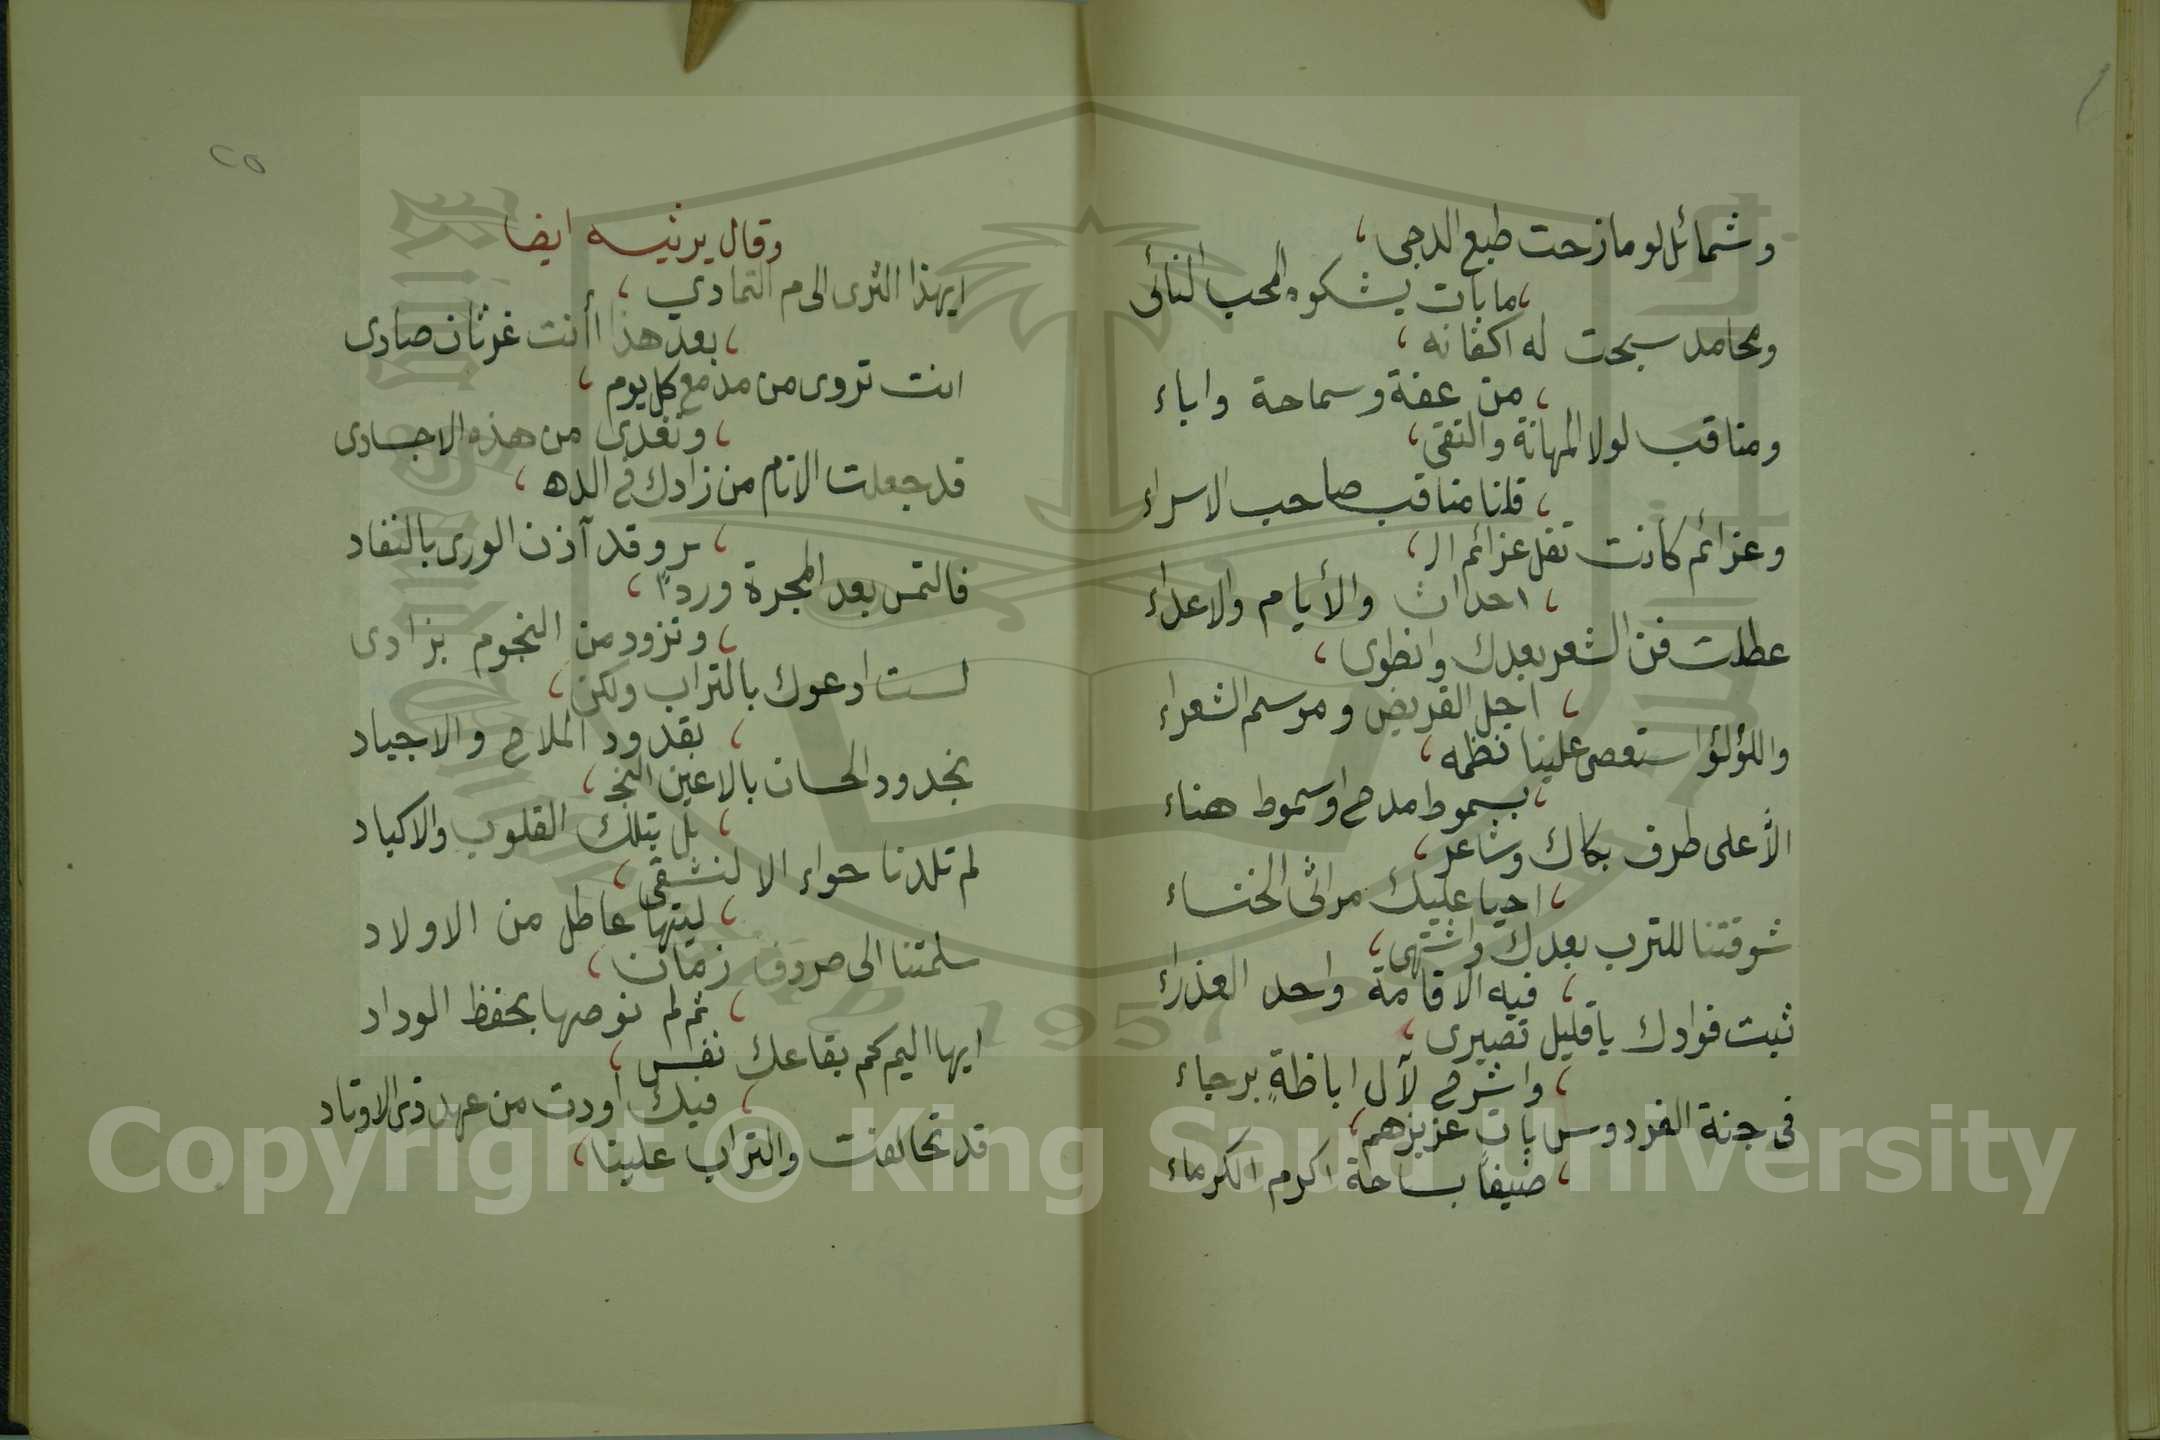 وشمائل لو مازحت طبع الدجى،
،ما بات يشكوه المحب النائى
ومحامد سبحت له اكفانه،
،من عفة وسماحة واباء
ومناقب لولا المهابة والتقى،
،قلنا مناقب صاحب الاسراء
وعزائم كانت تفل عزائم الـ،
،احداث والأيام والاعداء
عطلت فن الشعر بعدك وانطوى،
،اجل القريض وموسم الشعراء
واللؤلؤ استعصى علينا نظمه،
،بسموط مدح او سموط هناء
الا على طرف بكاك وشاعر،
،احيا عليك مراثى الخنساء
شوقتنا للترب بعدك واشتهى،
،فيه الاقامة واحد العذراء
ثبت فوادك يا قليل تصبرى،
،واشرح لآل اباظةٍ برجاء
فى جنة الفردوس بات عزيزهم،
،ضيفاً بساحة اكرم الكرماء
٢٥
وقال يرثيه ايضا
ايهذا الثرى الى م التمادي،
،بعد هذا أأنت غرثان صادى
انت تروى من مدمع كل يوم،
،وتغدى من هذه الاجسادى
قد جعلت الانام من زادك فى الده،
،ـر وقد آذن الورى بالنفاد
فالتمس بعد المجرة وردًا،
،وتزود من النجوم بزادى
لست ادعوك بالتراب ولكن،
،بقدود الملاح والاجياد
بخدود الحسان بالاعين النجـ،
،ـل بتلك القلوب والاكباد
لم تلدنا حواء الا لنشقى،
،ليتها عاطل من الاولاد
سلمتنا الى صروف زمان،
،ثم لم توصها بحفظ الوداد
ايها اليم كم بقاعك نفس،
،فيك أودت من عهد ذى الاوتاد
قد تحالفت والتراب علينا،
Copyright © King Saud University
1957